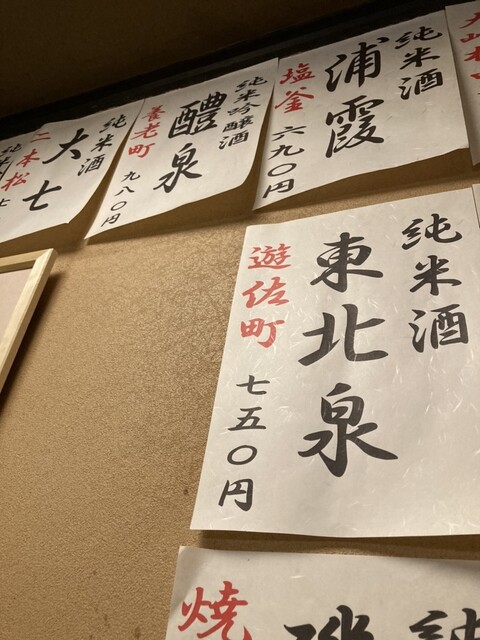 純米酒
浦霞
塩釜
六九〇円
純米吟醸酒
醴泉
養老町
九八〇円
純米酒
大七
二本松
七
純米酒
東北泉
遊佐町
七五〇円
純
磯
焼